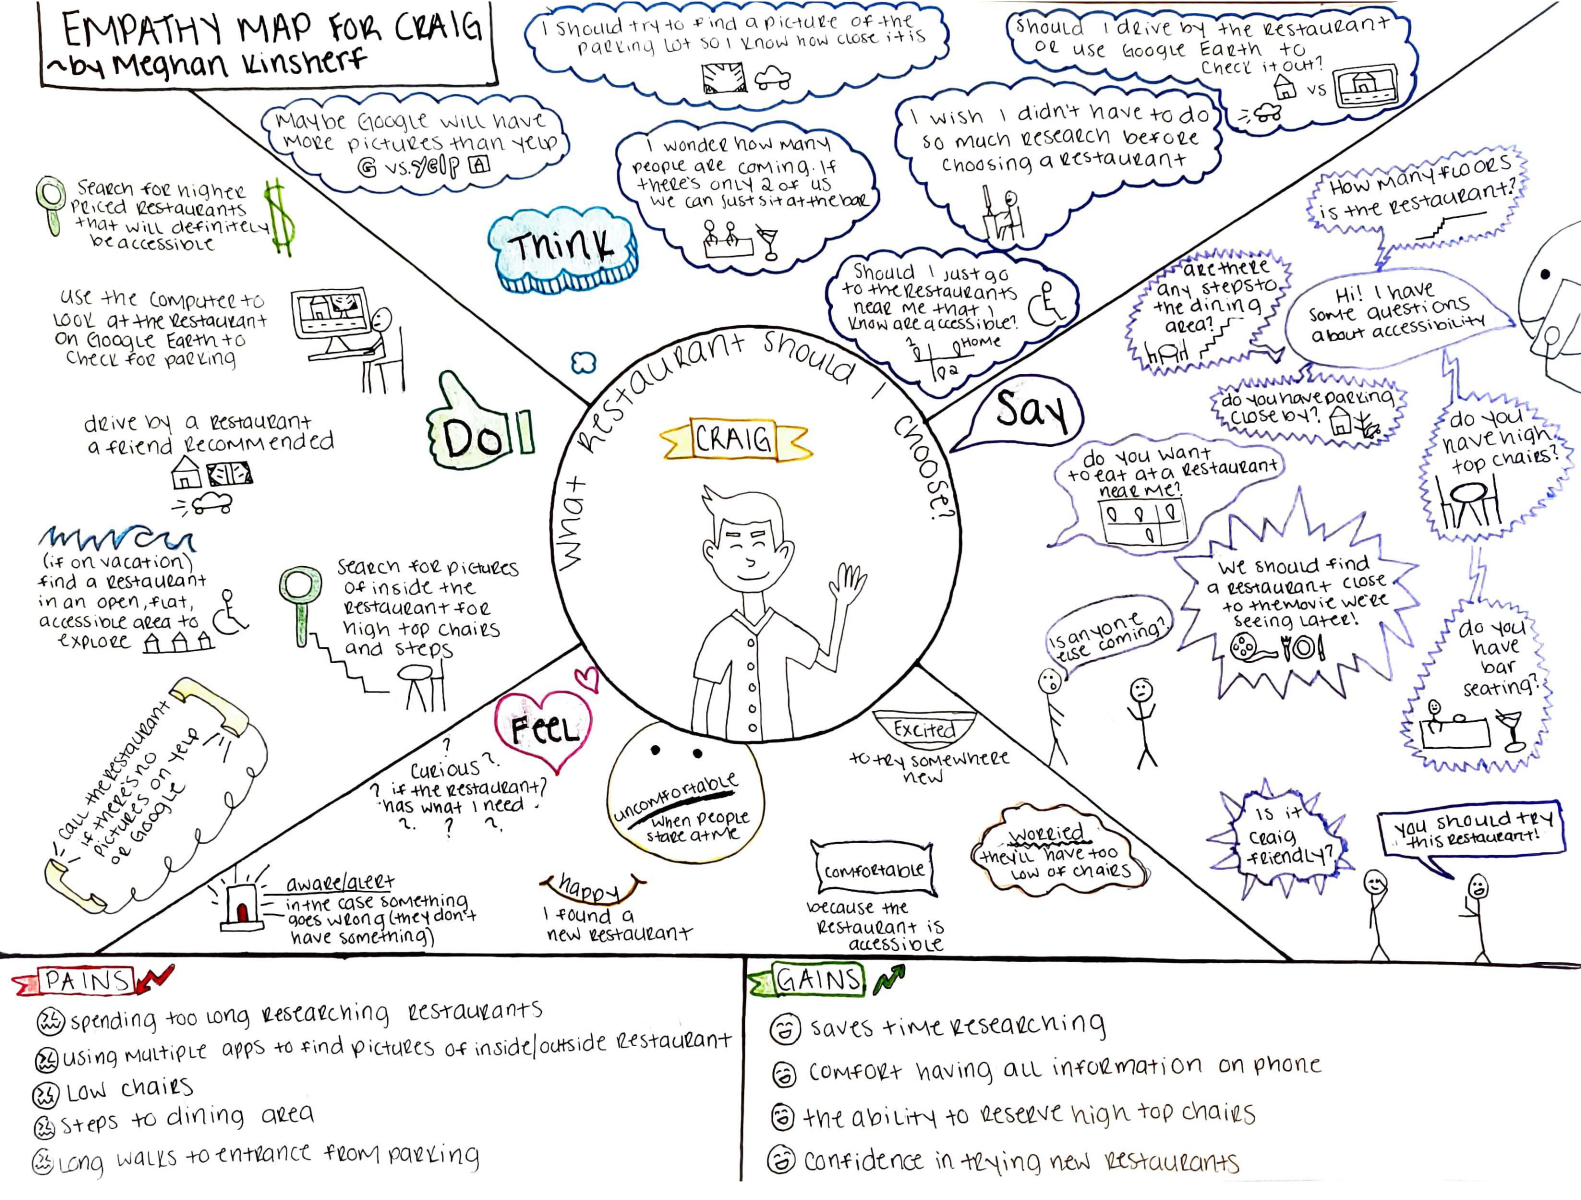 EMPATHY MAP FOR CRAIG
~by Meghan Kinsherf
I should try to find a picture of the
parking lot so I know how close it is
Should I drive by the restaurant
or use Google Earth to
check it out?
VS
Maybe Google will have
more pictures than yelp
G vs. yelp
I wonder how many
people are coming. If
there's only 2 of us
we can just sit at the bar
I wish I didn't have to do
so much research before
choosing a restaurant
Think
Should I just go
to the restaurants
near me that I
know are accessible?
HOME
2
Search for higher
priced restaurants
that will definitely
be accessible
$
use the computer to
look at the restaurant
on Google Earth to
check for parking
drive by a restaurant
a friend recommended
Do!!
(if on vacation)
find a restaurant
in an open, flat,
accessible area to
explore
Search for pictures
of inside the
restaurant for
high top chairs
and steps
call the restaurant
if there's no
pictures on yelp
or Google
What restaurant should I choose?
CRAIG
Say
How many floors
is the restaurant?
are there
any steps to
the dining
area?
Hi! I have
some questions
about accessibility
do you have parking
close by?
do you
have high
top chairs?
do you want
to eat at a restaurant
near me?
We should find
a restaurant close
to the movie we're
seeing later!
Is anyone
else coming?
do you
have
bar
seating?
Is it
Craig
friendly?
you should try
this restaurant!
Feel
?
curious?
? if the restaurant?
has what I need.
? ? ?
uncomfortable
when people
stare at me
Excited
to try somewhere
new
worried
they'll have too
low of chairs
aware/alert
in the case something
goes wrong (they don't
have something)
happy
I found a
new restaurant
comfortable
because the
restaurant is
accessible
PAINS
spending too long researching restaurants
using multiple apps to find pictures of inside/outside restaurant
Low chairs
Steps to dining area
Long walks to entrance from parking
GAINS
saves time researching
comfort having all information on phone
the ability to reserve high top chairs
confidence in trying new restaurants